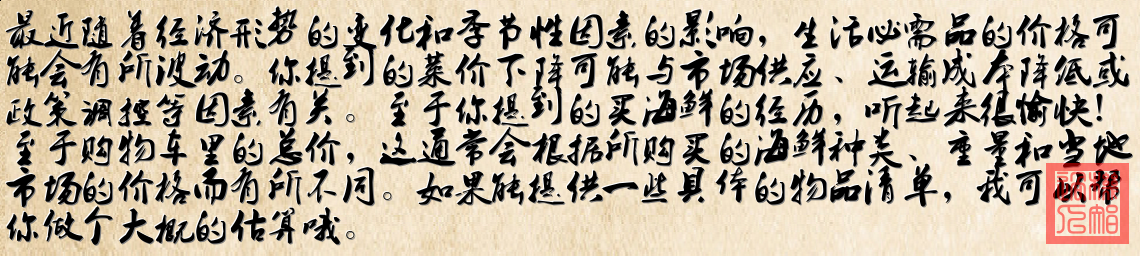 最近随着经济形势的变化和季节性因素的影响，生活必需品的价格可
能会有所波动。你提到的菜价下降可能与市场供应、运输成本降低或
政策调控等因素有关。至于你提到的买海鲜的经历，听起来很愉快！
至于购物车里的总价，这通常会根据所购买的海鲜种类、重量和当地
市场的价格而有所不同。如果能提供一些具体的物品清单，我可以帮
你做个大概的估算哦。